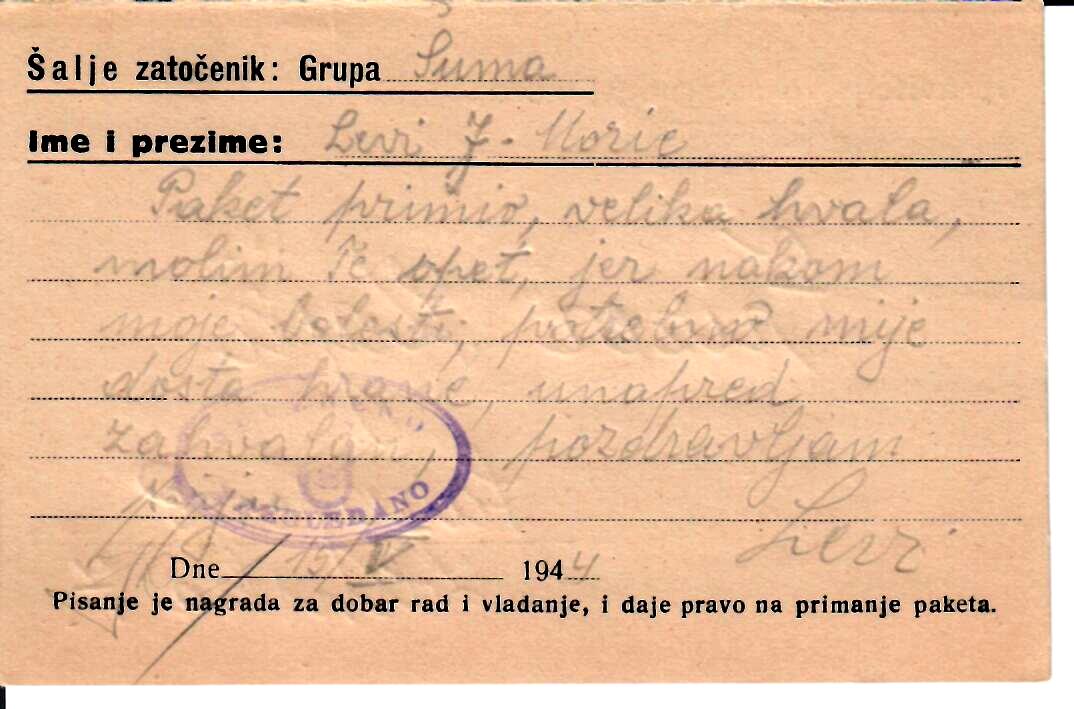 Šalje zatočenik: Grupa Šuma
Ime i prezime: Levi J. Moric
Paket primio, velika hvala,
molim Te opet, jer nakom
moje bolesti, potrebno mije
dosta hrane, unapred
zahvalan, pozdravljam
Levi
Dne 15/V 1944
Pisanje je nagrada za dobar rad i vladanje, i daje pravo na primanje paketa.